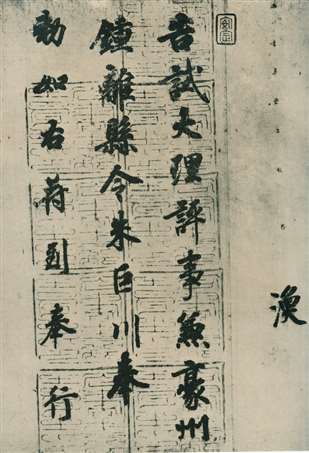 告試大理評事兼豪州
鍾離縣令朱巨川奉
勅如右符到奉行